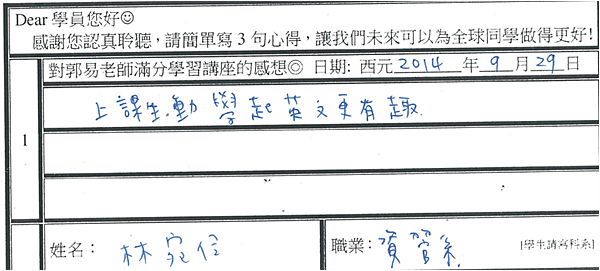 Dear 學員您好☺
感謝您認真聆聽，請簡單寫 3 句心得，讓我們未來可以為全球同學做得更好!
對郭易老師滿分學習講座的感想◎ 日期: 西元 2014 年 9 月 29 日
上課生動 學起英文更有趣.
1
姓名： 林宛信 職業： 資管系 [學生請寫科系]